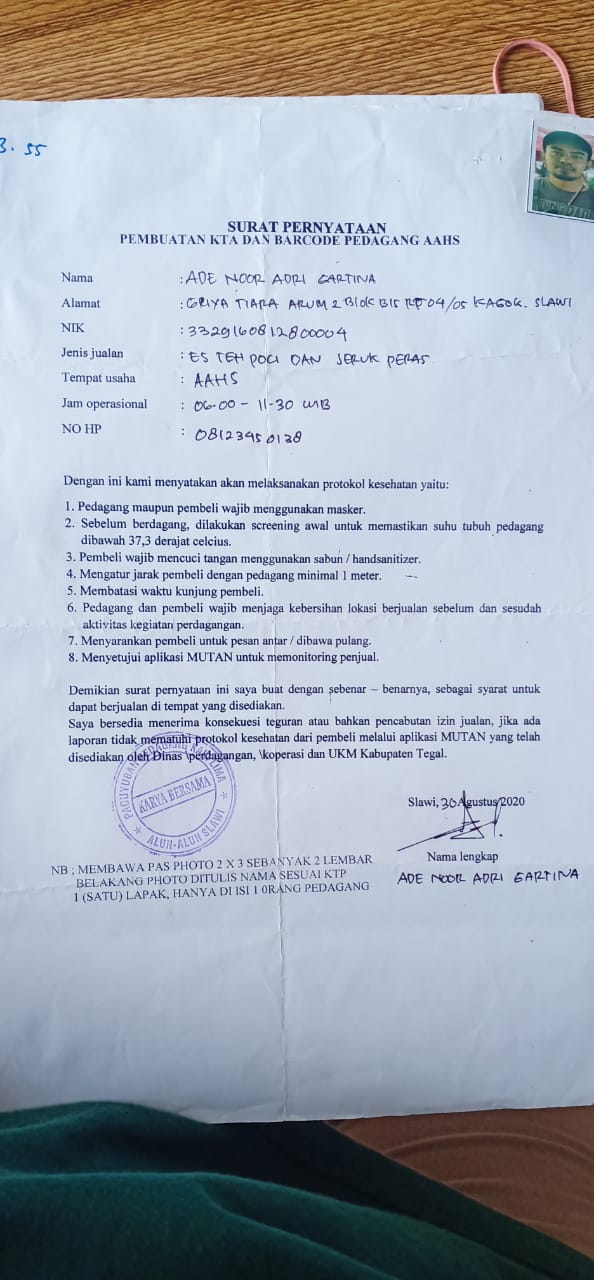 3. 55
SURAT PERNYATAAN
PEMBUATAN KTA DAN BARCODE PEDAGANG AAHS
Nama : ADE NOOR ADRI GARTINA
Alamat : GRIYA TIARA ARUM 2 Blok B15 RT 04/05 KAGOK. SLAWI
NIK : 3329160812800004
Jenis jualan : ES TEH POCI DAN JERUK PERAS
Tempat usaha : AAHS
Jam operasional : 06.00 - 11-30 WIB
NO HP : 08123450138
Dengan ini kami menyatakan akan melaksanakan protokol kesehatan yaitu:
1. Pedagang maupun pembeli wajib menggunakan masker.
2. Sebelum berdagang, dilakukan screening awal untuk memastikan suhu tubuh pedagang
dibawah 37,3 derajat celcius.
3. Pembeli wajib mencuci tangan menggunakan sabun / handsanitizer.
4. Mengatur jarak pembeli dengan pedagang minimal 1 meter.
5. Membatasi waktu kunjung pembeli.
6. Pedagang dan pembeli wajib menjaga kebersihan lokasi berjualan sebelum dan sesudah
aktivitas kegiatan perdagangan.
7. Menyarankan pembeli untuk pesan antar / dibawa pulang.
8. Menyetujui aplikasi MUTAN untuk memonitoring penjual.
Demikian surat pernyataan ini saya buat dengan sebenar – benarnya, sebagai syarat untuk
dapat berjualan di tempat yang disediakan.
Saya bersedia menerima konsekuesi teguran atau bahkan pencabutan izin jualan, jika ada
laporan tidak mematuhi protokol kesehatan dari pembeli melalui aplikasi MUTAN yang telah
disediakan oleh Dinas \perdagangan, \koperasi dan UKM Kabupaten Tegal.
PAGUYUBAN PEDAGANG KAKI LIMA
KARYA BERSAMA
ALUN-ALUN SLAWI
Slawi, 30 Agustus 2020
Nama lengkap
ADE NOOR ADRI GARTINA
NB ; MEMBAWA PAS PHOTO 2 X 3 SEBANYAK 2 LEMBAR
BELAKANG PHOTO DITULIS NAMA SESUAI KTP
1 (SATU) LAPAK, HANYA DI ISI 1 0RANG PEDAGANG